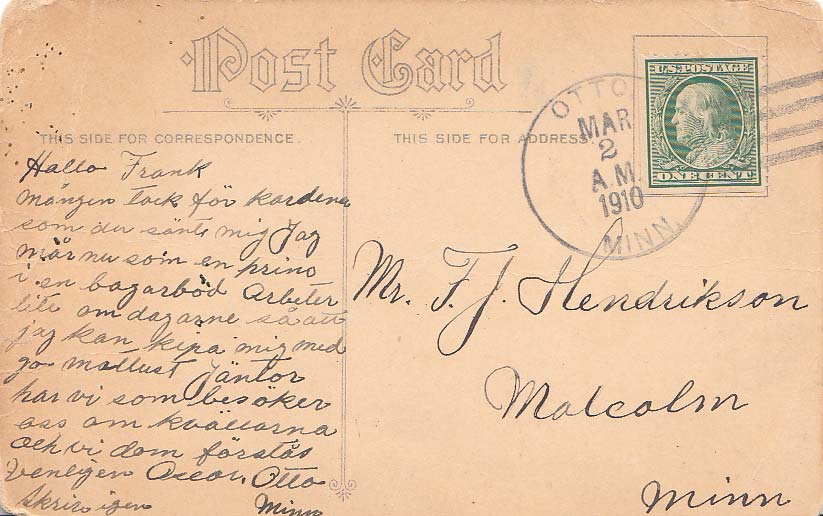 Post Card
THIS SIDE FOR CORRESPONDENCE.
THIS SIDE FOR ADDRESS.
OTTO
MAR
2
A.M.
1910
MINN.
U.S. POSTAGE
ONE CENT
Hallo Frank
mången tack för kardena
som du sänte mig Jag
mår nu som en prins
i en bagarbod Arbeter
lite om dagarne så att
jag kan kipa mig med
go matlust Jäntor
har vi som besöker
oss om kvällarna
och vi dom förstås
venligen Oscar. Otto
skriv igen Minn
Mr. F. J. Hendrikson
Malcolm
Minn